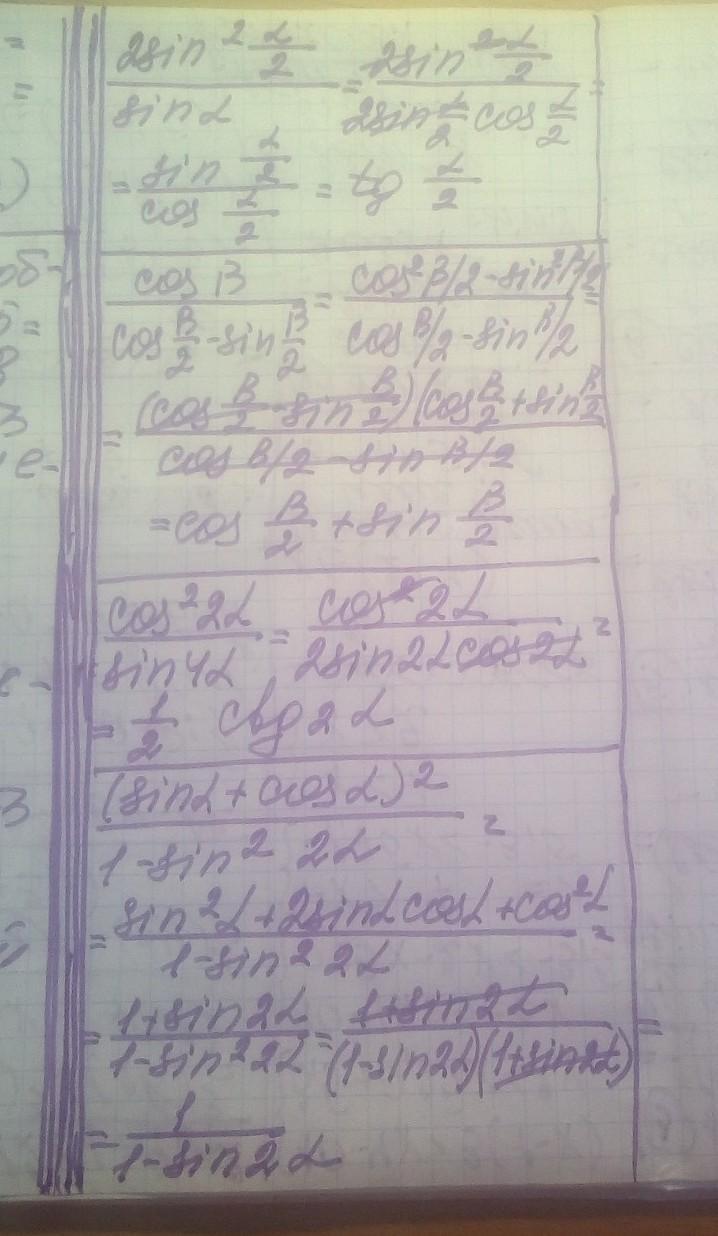 =
=
)
об-
=
В
З
е-
е-
З
2sin² α/2 / sin α = 2sin² α/2 / 2sin α/2 cos α/2 =
= sin α/2 / cos α/2 = tg α/2
cos β / cos β/2 - sin β/2 = cos² β/2 - sin² β/2 / cos β/2 - sin β/2 =
= (cos β/2 - sin β/2)(cos β/2 + sin β/2 / cos β/2 - sin β/2
= cos β/2 + sin β/2
cos² 2α / sin 4α = cos² 2α / 2sin 2α cos 2α =
= 1/2 ctg 2α
(sin α + cos α)² / 1 - sin² 2α =
= sin² α + 2sin α cos α + cos² α / 1 - sin² 2α =
= 1 + sin 2α / 1 - sin² 2α = 1 + sin 2α / (1 - sin 2α)(1 + sin 2α) =
= 1 / 1 - sin 2α